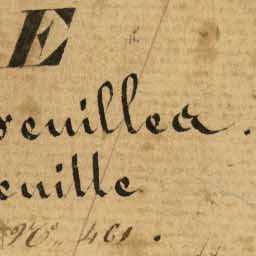 E
feuillea.
euille
N°. 461.